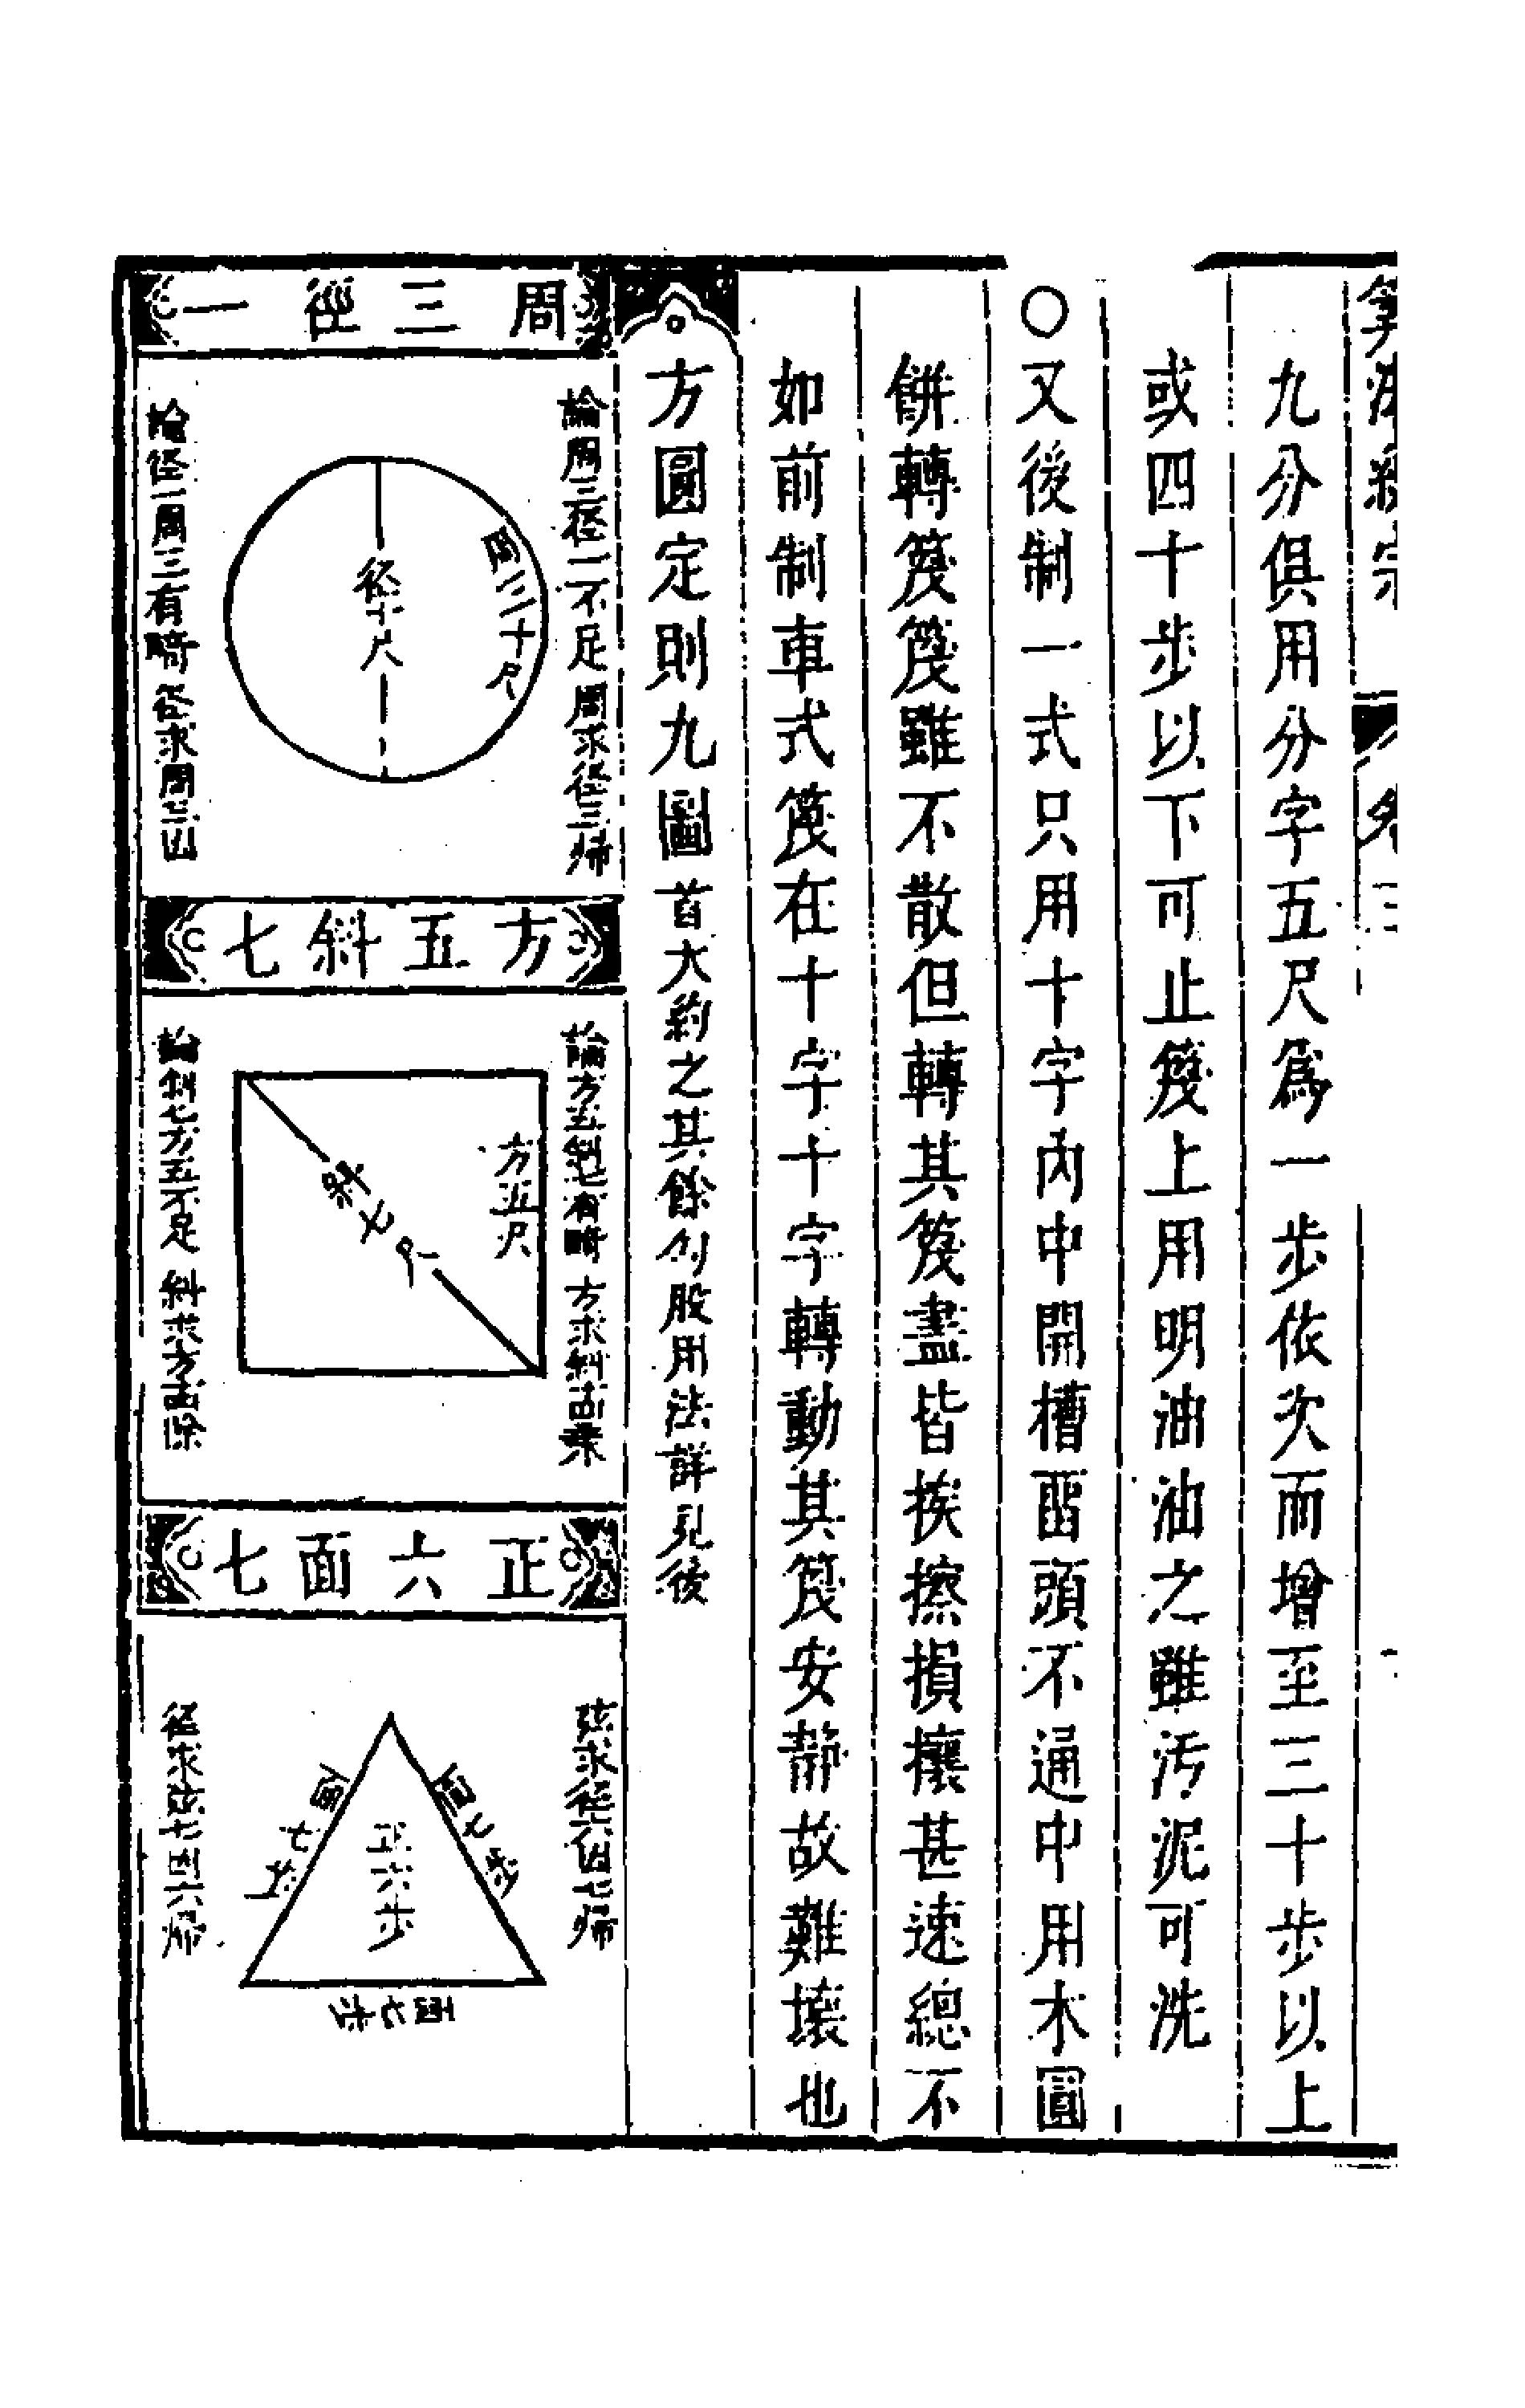 九分俱用分字五尺爲一步依次而增至三十步以上
或四十步以下可止篾上用明油油之雖汚泥可洗
〇又後制一式只用十字内中開槽畱頭不通中用木圓
餅轉篾篾雖不散但轉其篾盡皆挨擦損壞甚速總不
如前制車式篾在十字十字轉動其篾安静故難壞也
方圓定則九圖 首大約之其餘勾股用法詳見後
周三徑一
論周三徑一不足 周求徑三歸
周三十尺
徑十尺
論徑一周三有畸 徑求周三因
方五斜七
論方五斜七有畸 方求斜七因五歸
方五尺
斜七尺
論斜七方五不足 斜求方
正六面七
弦求徑六因七歸
面七步
正六步
面七步
面七步
徑求弦七因六歸